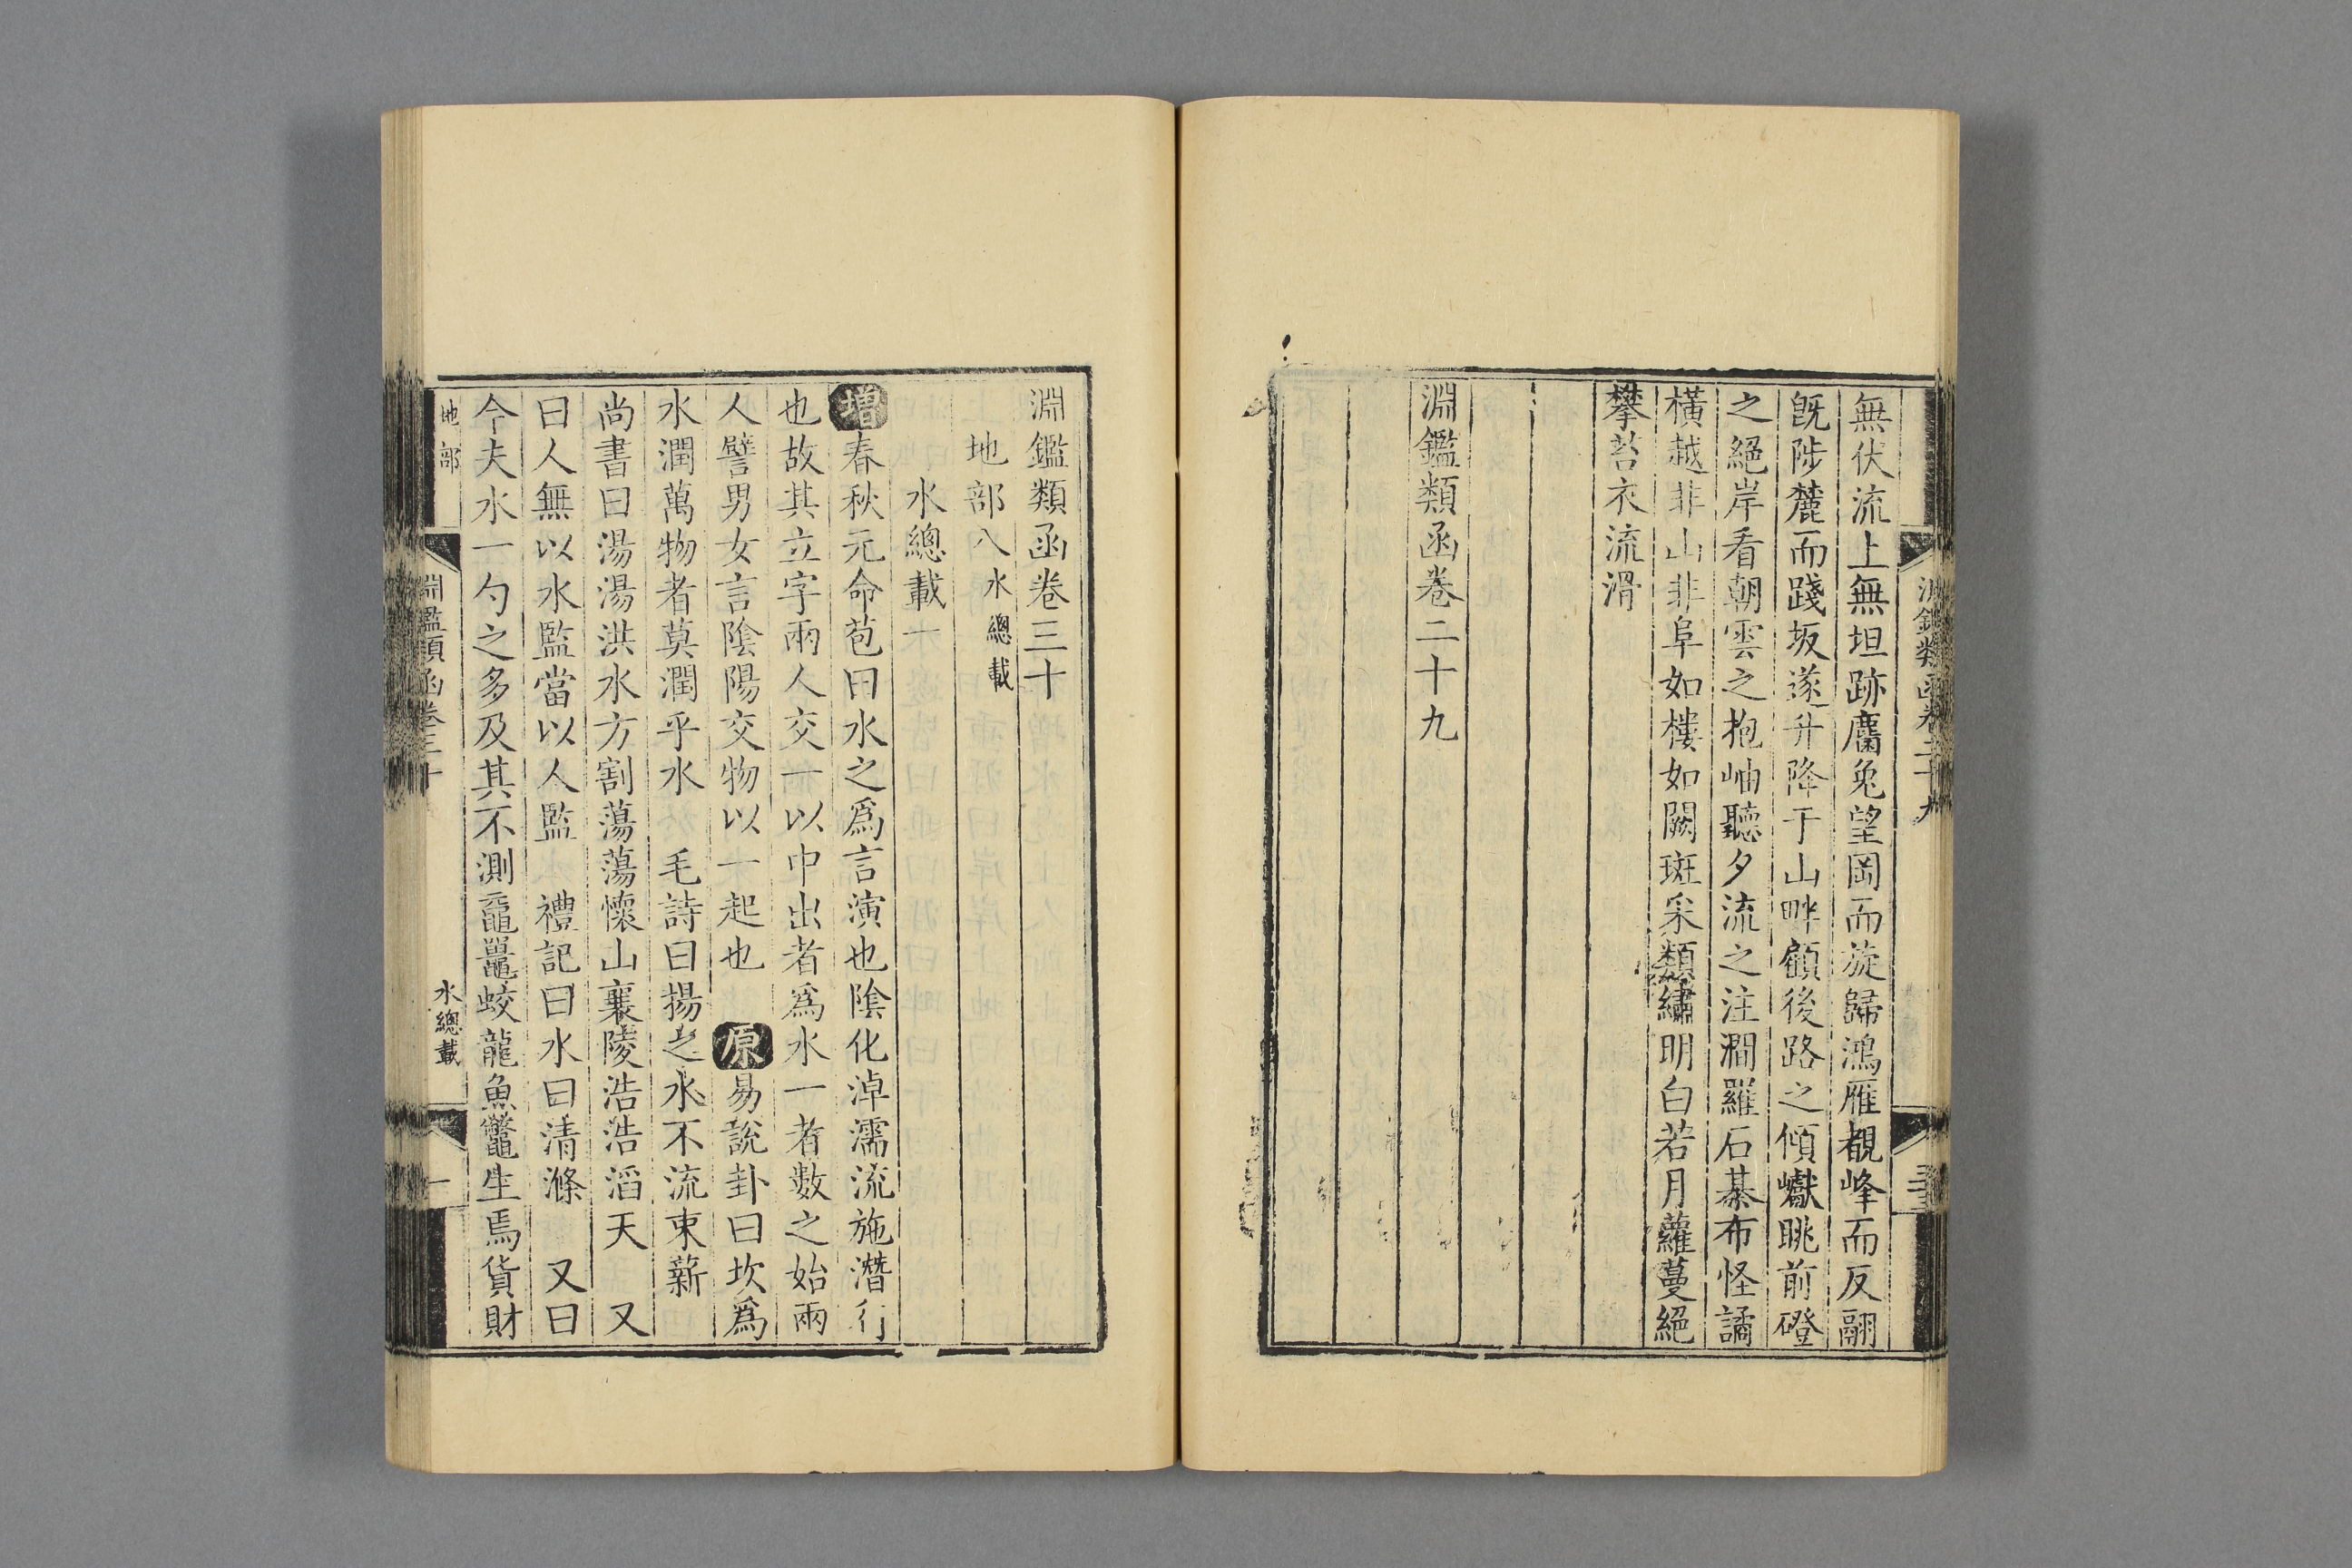 淵鑑類函卷二十九
無伏流上無坦跡麕兔望岡而旋歸鴻雁覩峰而反翮
旣陟麓而踐坂遂升降于山畔顧後路之傾巘眺前磴
之絕岸看朝雲之抱岫聽夕流之注澗羅石棊布怪譎
橫越非山非阜如樓如闕斑采類繡明白若月蘿蔓絕
攀苔衣流滑
淵鑑類函卷二十九
淵鑑類函卷三十
地部八 水總載
水總載一
增春秋元命苞曰水之爲言演也陰化淖濡流施潛行
也故其立字兩人交一以中出者爲水一者數之始兩
人譬男女言陰陽交物以一起也 原易說卦曰坎爲
水潤萬物者莫潤乎水 毛詩曰揚之水不流束薪
尚書曰湯湯洪水方割蕩蕩懷山襄陵浩浩滔天 又
曰人無以水監當以人監 禮記曰水曰清滌 又曰
今夫水一勺之多及其不測黿鼉蛟龍魚鼈生焉貨財
地部 淵鑑類函卷三十 水總載 一